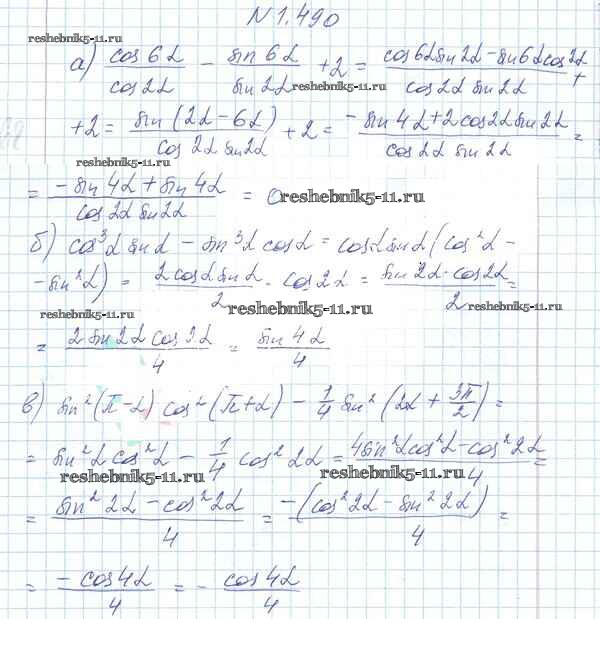 N 1.490
reshebnik5-11.ru
а) cos6α/cos2α − sin6α/sin2α + 2 = (cos6α sin2α − sin6α cos2α)/(cos2α sin2α) +
reshebnik5-11.ru
+2 = sin(2α − 6α)/(cos2α sin2α) + 2 = (−sin4α + 2cos2α sin2α)/(cos2α sin2α) =
reshebnik5-11.ru
= (−sin4α + sin4α)/(cos2α sin2α) = 0
reshebnik5-11.ru
б) cos³α sinα − sin³α cosα = cosα sinα (cos²α −
− sin²α) = (2cosα sinα)/2 · cos2α = (sin2α · cos2α)/2 =
reshebnik5-11.ru
reshebnik5-11.ru
reshebnik5-11.ru
= (2 sin2α cos2α)/4 = sin4α/4
в) sin²(π−α) cos²(π+α) − 1/4 sin²(2α + 3π/2) =
= sin²α cos²α − 1/4 cos²2α = (4sin²α cos²α − cos²2α)/4 =
reshebnik5-11.ru
reshebnik5-11.ru
= (sin²2α − cos²2α)/4 = −(cos²2α − sin²2α)/4 =
= −cos4α/4 = − cos4α/4